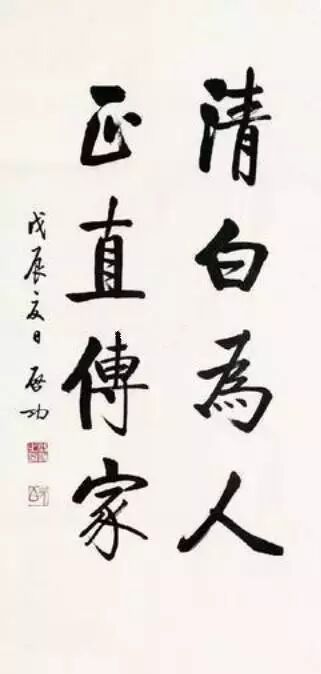 清白為人
正直傳家
戊辰夏日 啓功